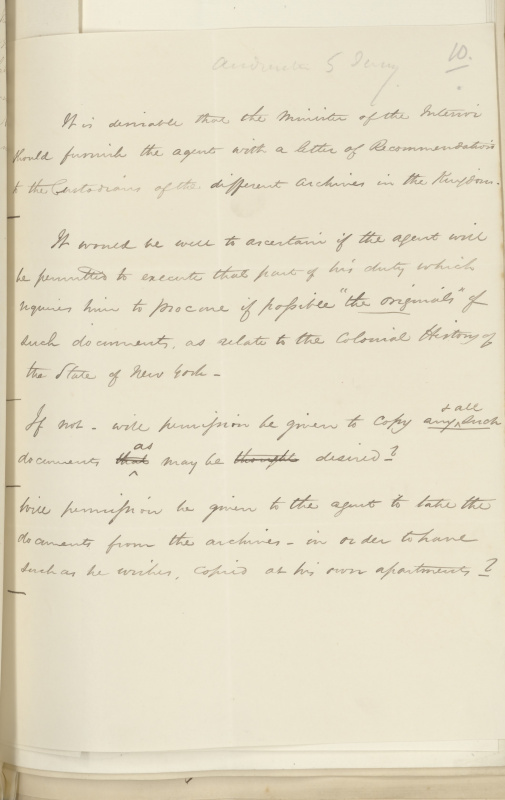 5 Jany
10.
It is desirable that the Minister of the Interior
should furnish the agent with a letter of Recommendations
to the Custodians of the different archives in the Kingdom.
It would be well to ascertain if the agent will
be permitted to execute that part of his duty which
requires him to procure if possible "the originals" of
such documents, as relate to the Colonial History of
the State of New York -
If not - will permission be given to copy any & all such
documents that as may be thought desired?
Will permission be given to the agent to take the
documents from the archives - in order to have
such as he wishes, copied at his own apartments?